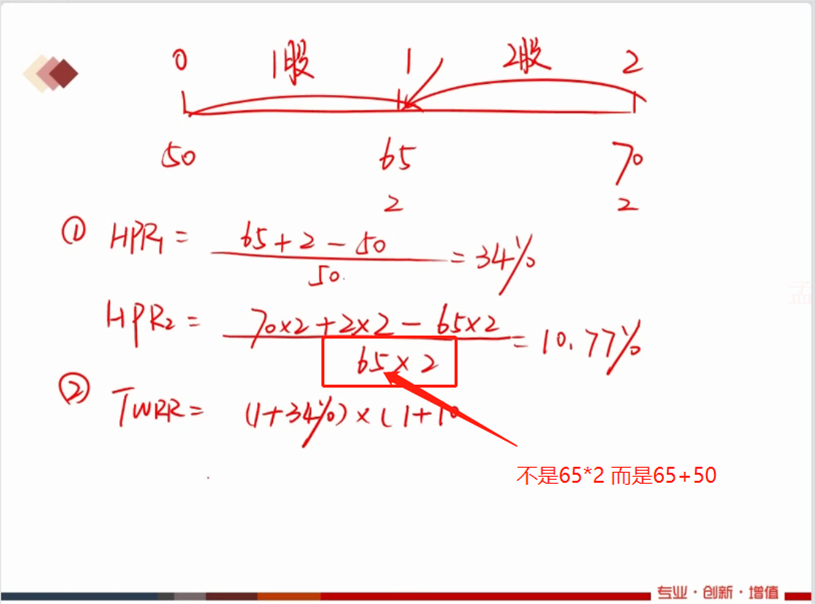 0 1股 1 2股 2
50 65 70
2 2
① HPR₁ = 65+2-50 / 50 = 34%
HPR₂ = 70×2+2×2-65×2 / 65×2 = 10.77%
② TWRR = (1+34%)×(1+10
不是65*2 而是65+50
专业·创新·增值